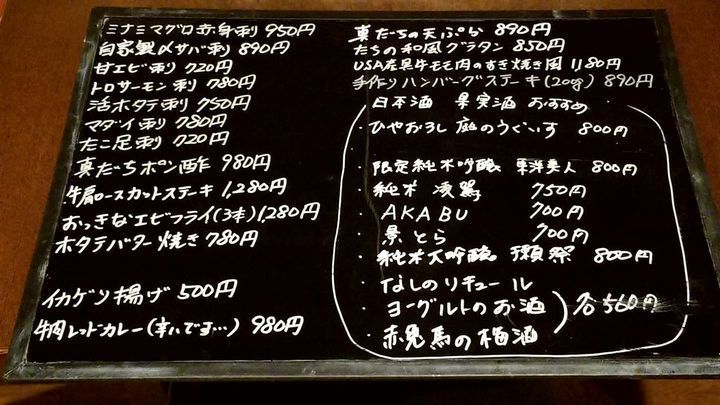 ミナミマグロ赤身刺 950円
自家製〆サバ刺 890円
甘エビ刺 720円
トロサーモン刺 780円
活ホタテ刺 750円
マダイ刺 780円
たこ足刺 720円
真だちポン酢 980円
牛肩ロースカットステーキ 1,280円
おっきなエビフライ(3本) 1,280円
ホタテバター焼き 780円
イカゲソ揚げ 500円
牛肉レッドカレー(辛いです…) 980円
真だちの天ぷら 890円
たちの和風グラタン 850円
USA産黒牛モモ肉のすき焼き風 1,180円
手作りハンバーグステーキ(200g) 890円
日本酒 果実酒 おすすめ
・ひやおろし 庭のうぐいす 800円
限定純米吟醸 東洋美人 800円
・純米 凌駕 750円
・AKABU 700円
・景とら 700円
・純米大吟醸 獺祭 800円
・なしのリキュール
・ヨーグルトのお酒 各560円
・赤兎馬の梅酒